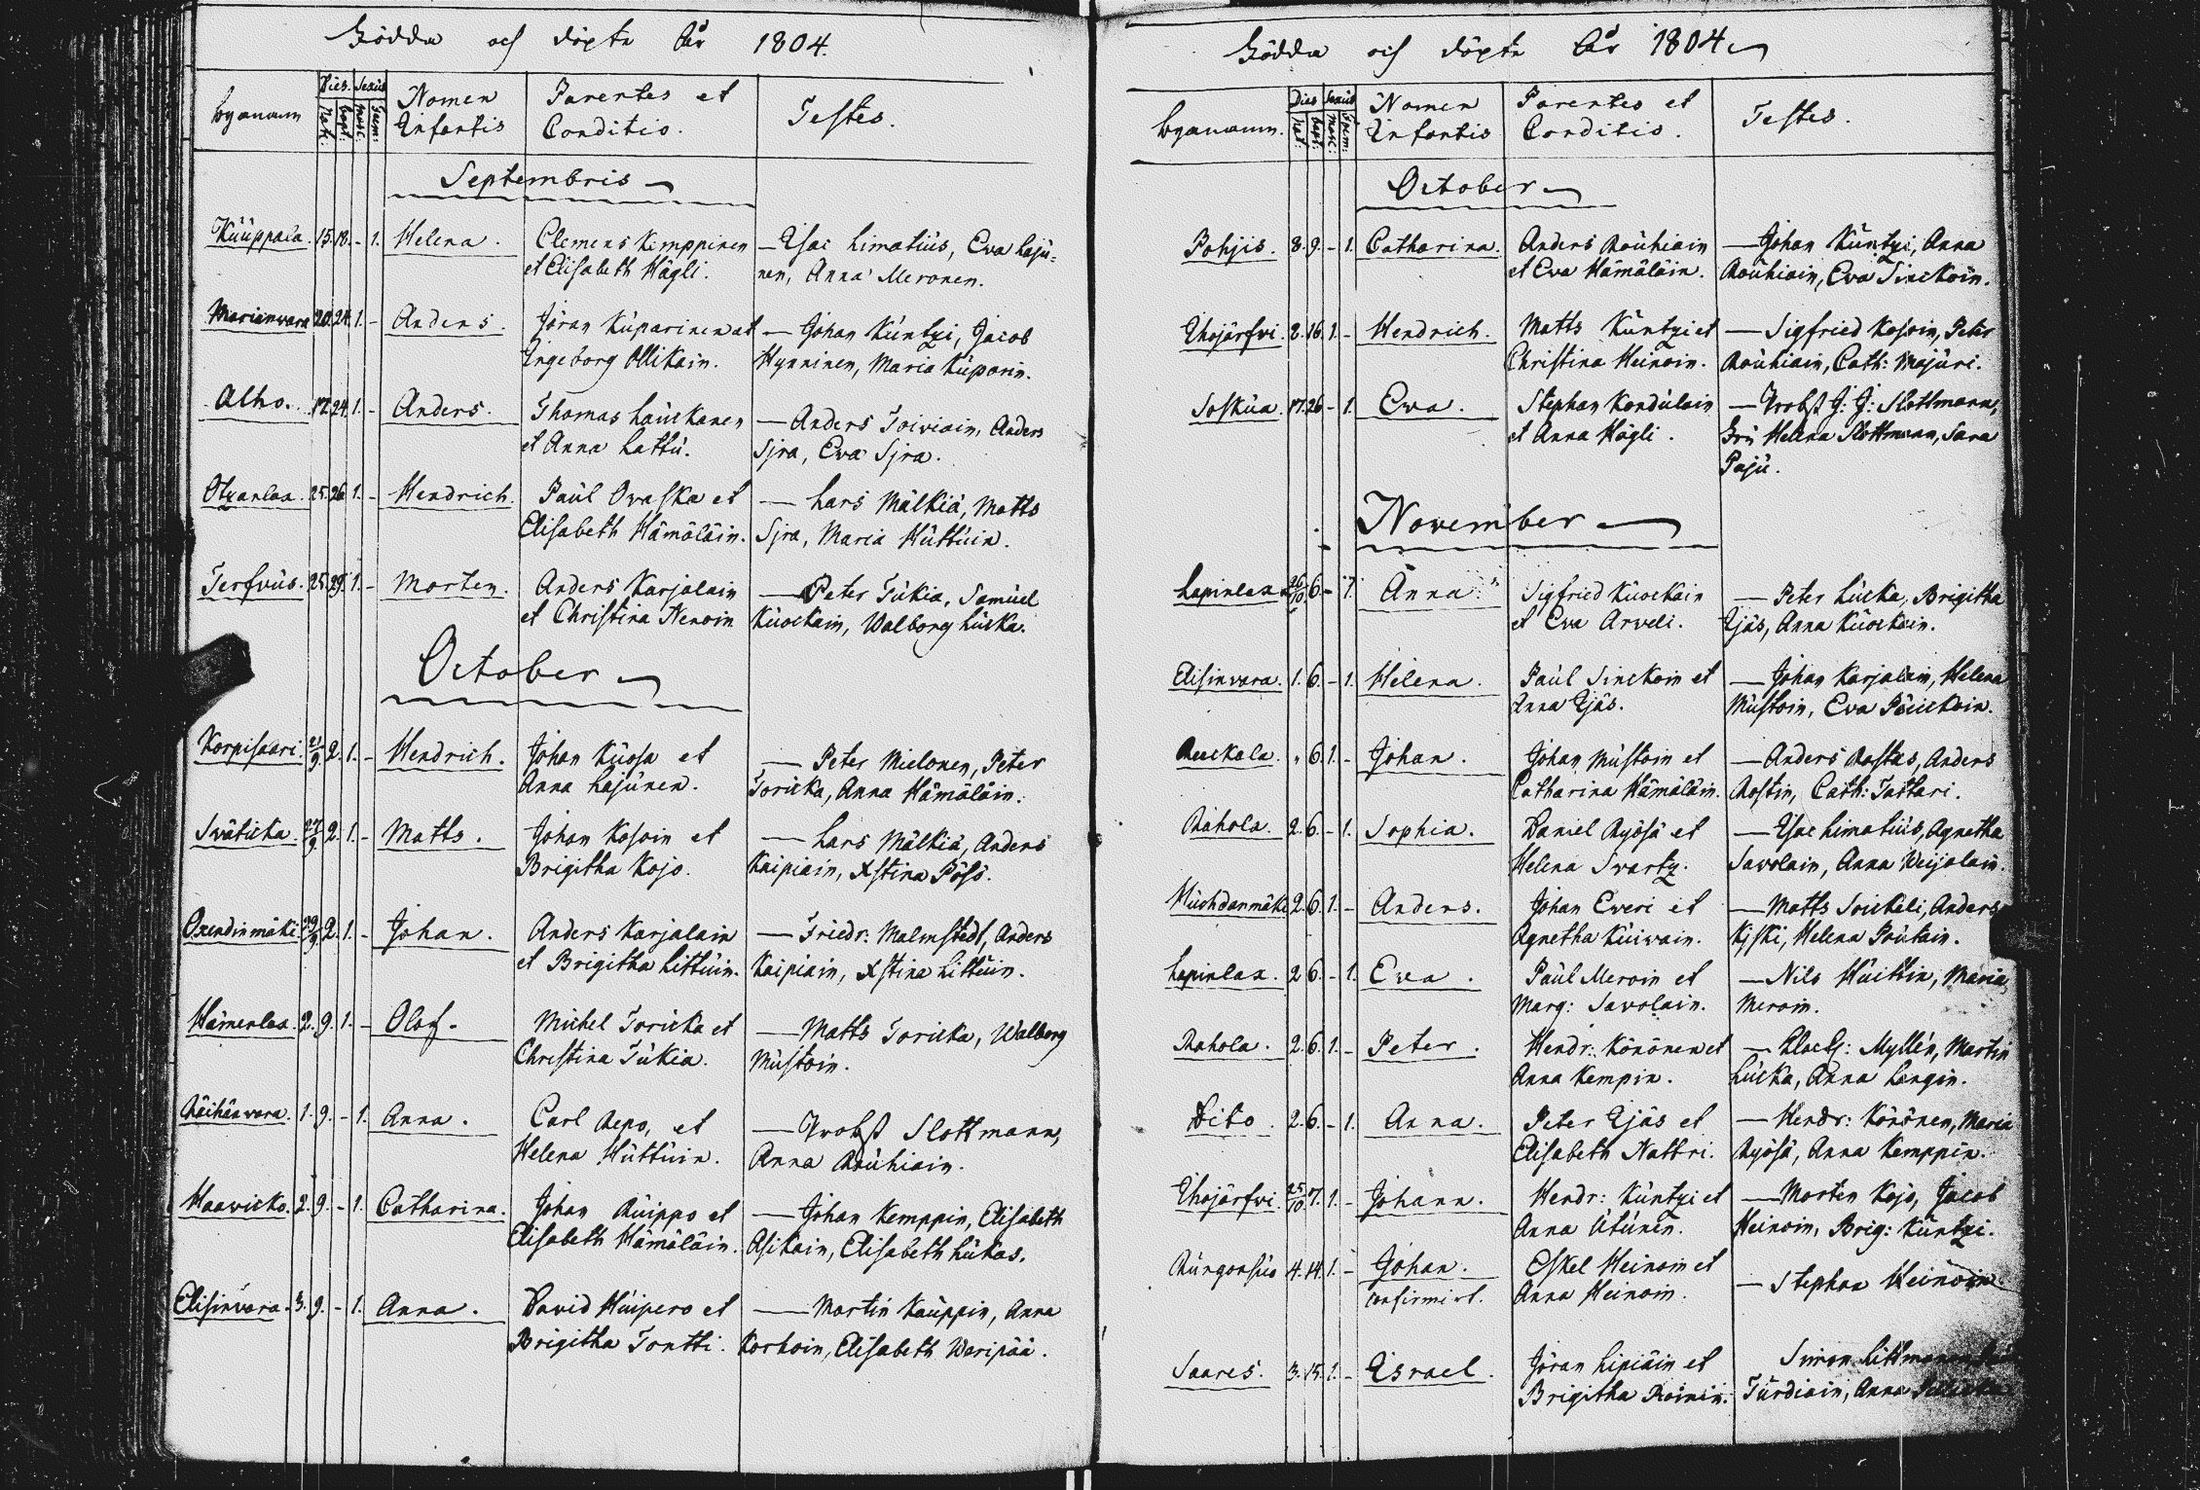 Födda och döpta År 1804.
byanamn
Dies. Sexus
Nat: bapt: Masc: Foem:
Nomen Infantis
Parentes et Conditio.
Testes.
Septembris
Kuuppala. 15. 18. - 1. Helena. Clemens Kemppinen — Isac Limatius, Eva Laju=
et Elisabeth Hägli. nen, Anna Meronen.
Marianvara 20. 24. 1. - Anders. Jöran Kuparinen et — Johan Kuntzi, Jacob
Ingeborg Ollikain. Hynninen, Maria Kuparin.
Alho. 17. 24. 1. - Anders. Thomas Lauckanen — Anders Toiviain, Anders
et Anna Lattu. Sjra, Eva Sjra.
Otzanlax. 25. 26. 1. - Hendrich. Paul Ovaska et — Lars Mälkiä, Matts
Elisabeth Hämäläin. Sjra, Maria Huttuin.
Terfvus. 25. 29. 1. - Morten. Anders Karjalain — Peter Tukia, Samuel
et Christina Neroin Kuockain, Walborg Lucka.
October
Korpisaari. 21/9 2. 1. - Hendrich. Johan Kuosa et — Peter Mielonen, Peter
Anna Lajunen. Toricka, Anna Hämäläin.
Sväticka. 27/9 2. 1. - Matts. Johan Kosoin et — Lars Mälkiä, Anders
Brigitha Kojo. Kaipiain, Xstina Pösö.
Oxendinmäki. 29/9 2. 1. - Johan. Anders Karjalain — Friedr: Malmstedt, Anders
et Brigitha Littuin. Kaipiain, Xstina Littuin.
Hämenlax. 2. 9. 1. - Olof. Michel Toricka et — Matts Toricka, Walborg
Christina Tukia. Mustoin.
Räihävara. 1. 9. - 1. Anna. Carl Repo, et — Probst Slottmann,
Helena Huttuin. Anna Rouhiain.
Haavicko. 2. 9. - 1. Catharina. Johan Ruippo et — Johan Kemppin, Elisabeth
Elisabeth Hämäläin. Asikain, Elisabeth Lukas.
Elisinvara. 3. 9. - 1. Anna. David Huipero et — Martin Kauppin, Anna
Brigitha Tontti. Korhoin, Elisabeth Waripää.
Födda och döpta År 1804
byanamn.
Dies Sexus
Nat: bapt: Masc: Foem:
Nomen Infantis
Parentes et Conditis.
Testes.
October
Pohjis. 8. 9. - 1. Catharina. Anders Rouhiain — Johan Kuntzi, Anna
et Eva Hämäläin. Rouhiain, Eva Sinckoin.
Ihojärfvi. 8. 16. 1. - Hendrich. Matts Kuntzi et — Sigfried Kosoin, Peter
Christina Heinoin. Rouhiain, Cath: Majuri.
Soskua. 17. 26. - 1. Ewa. Stephan Kondulain — Probst J: J: Slottmann,
et Anna Hägli. Fru Helena Slottmann, Sara
Paju.
November
Lapinlax 26/10. 6. - 1. Anna. Sigfried Kuockain — Peter Lucka, Brigitha
et Eva Arveli. Ijäs, Anna Kuockain.
Elisinvara. 1. 6. - 1. Helena. Paul Sinckoin et — Johan Karjalain, Helena
Anna Ijäs. Mustoin, Eva Pöückoin.
Reuckala. " 6. 1. - Johan. Johan Mustoin et — Anders Rastas, Anders
Catharina Hämäläin. Rostin, Cath: Tattari.
Rahola. 2. 6. - 1. Sophia. Daniel Ryösä et — Isac Limatius, Agnetha
Helena Svartz. Savolain, Anna Weijalain.
Huuhdanmäki 2. 6. 1. - Anders. Johan Everi et — Matts Souckeli, Anders
Agnetha Kuivain. Kjski, Helena Poutain.
Lapinlax. 2 6. - 1. Eva. Paul Meroin et — Nils Huittin, Maria
Marg: Savolain. Meroin.
Rahola. 2. 6. 1. - Peter. Hendr: Könönen et — Klock: Myllén, Martin
Anna Kempin. Lucka, Anna Langin.
Dito. 2. 6. - 1. Anna. Peter Ijäs et — Hendr: Könönen, Maria
Elisabeth Nattri. Ryösä, Anna Kemppin.
Ihojärfvi. 25/10. 7. 1. - Johann. Hendr: Kuntzi et — Morten Kojo, Jacob
Anna Utunen. Heinoin, Brig: Kuntzi.
Rungonsuo 4. 14. 1. - Johan. Eskel Heinoin et — Stephan Heinoin.
confirmirt. Anna Heinoin.
Saares. 3. 15. 1. - Israel. Jöran Lipiäin et Simon
Brigitha Roinin. Turdiain, Anna